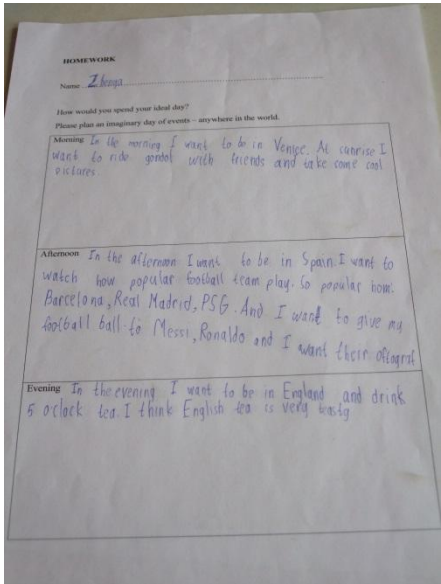 HOMEWORK
Name Zbenya
How would you spend your ideal day?
Please plan an imaginary day of events – anywhere in the world.
Morning In the morning I want to be in Venice. At sunrise I
want to ride gondol with friends and take some cool
pictures.
Afternoon In the afternoon I want to be in Spain. I want to
watch how popular football team play. So popular how:
Barcelona, Real Madrid, PSG. And I want to give my
football ball to Messi, Ronaldo and I want their oftogrst
Evening In the evening I want to be in England and drink
5 o'clock tea. I think English tea is very teasty